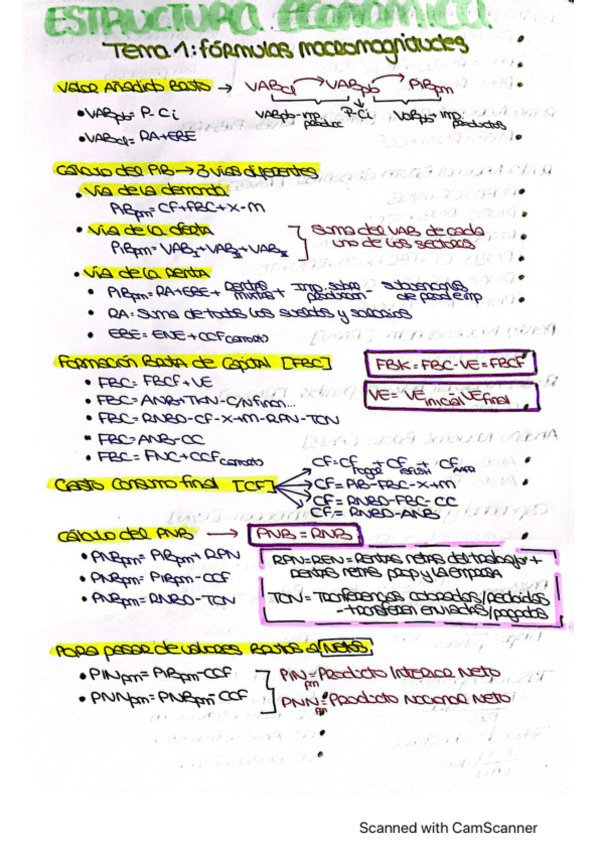 ESTRUCTURA ECONOMICA
Tema 1: fórmulas macromagnitudes
Valor Añadido Bruto → VABcf → VABpb → PiBpm
• VABpb = P - Ci
VABpb - imp. produc
P - Ci
VABpb + imp. productos
• VABcf = RA + EBE
Cálculo del PIB → 3 vías diferentes
• Vía de la demanda
PiBpm = CF + FBC + X - M
• Vía de la oferta
PiBpm = VAB + VAB + VAB
Suma del VAB de cada uno de los sectores
• Vía de la Renta
• PiBpm = RA + EBE + Rentas mixtas + Imp. sobre producción - subvenciones de prod e imp
• RA: Suma de todos los sueldos y salarios
• EBE = ENE + CCF
Formación Bruta de Capital [FBC]
FBK = FBC - VE = FBCF
• FBC = FBCF + VE
VE = VE inicial VE final
• FBC = ANB + TKN - C/N finan...
• FBC = RNBD - CF - X + M - RPN - TCN
• FBC = ANB - CC
• FBC = FNC + CCF
Gasto Consumo final [CF]
CF = CF hogar + CF + CF
CF = PIB - FBC - X + M
CF = RNBD - FBC - CC
CF = RNBD - ANB
Cálculo del PNB → PNB = RNB
• PNBpm = PiBpm + RPN
• PNBpm = PIBpm - CCF
• PNBpm = RNBD - TCN
RPN = REN = Rentas netas del trabajo + rentas netas prop y la empresa
TCN = Transferencias cobradas/recibidas - transferen enviadas/pagados
Para pasar de valores Brutos a Netos
• PINpm = PiBpm - CCF
• PNNpm = PNBpm - CCF
PINpm = Producto Interior Neto
PNNpm = Producto Nacional Neto
Scanned with CamScanner